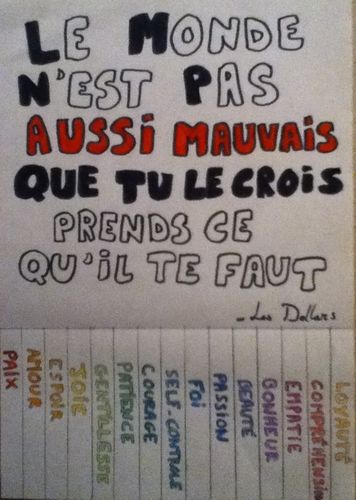 LE MONDE
N'EST PAS
AUSSi MAUVAiS
QUE TU LE CROiS
PRENDS CE
QU'iL TE FAUT
- Les Dollars
PAIX
AMOUR
ESPOIR
JOIE
GENTILLESSE
PATIENCE
COURAGE
SELF-CONTROLE
FOI
PASSION
BEAUTÉ
BONHEUR
EMPATIE
COMPRÉHENSION
LOYAUTÉ